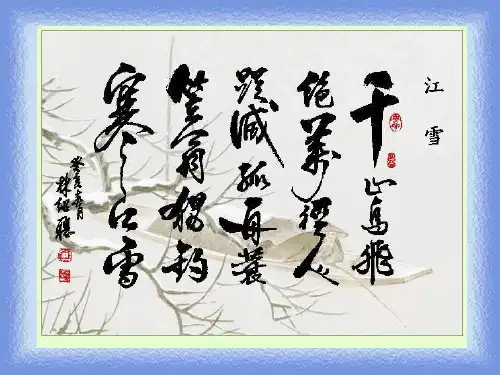 江雪
千山鳥飛
絕萬徑人
蹤滅孤舟蓑
笠翁獨釣
寒江雪